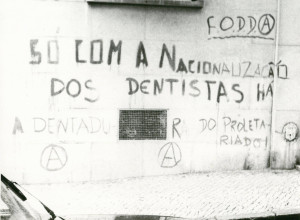 F.O.D.D.Ⓐ
SÓ COM A NACIONALIZAÇÃO
DOS DENTISTAS HÁ
A DENTADU RA DO PROLETA-
RIADO!
Ⓐ Ⓐ